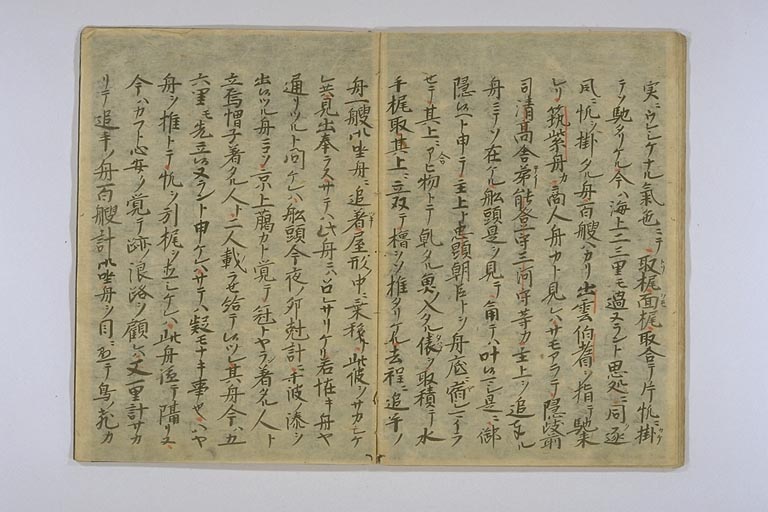 実ニウレシケナル氣色ニテ取梶面梶取合テ片帆ニ掛
テソ馳タリケル今ハ海上二三里モ過ヌラント思処ニ同逐
風ニ帆ヲ掛タル舟百艘ハカリ出雲伯耆ヲ指テ馳来
レリ筑紫舟カ商人舟カト見レハサモアラテ隠岐判官
司清高舎弟能登守三河守等カ主上ヲ追奉ル
舟ニテソ在ケル舩頭是ヲ見テ角テハ叶ハシ是ニ御
隠レ候ヘト申テ主上ト忠顕朝臣トヲ舟底ニ宿シマイラ
セテ其上ニアヒ物トテ乾タル魚ヲ入タル俵ヲ取積テ水
手梶取其上ニ立双テ櫓ヲソ推タリケル去程ニ追手ノ
舟一艘御坐舟ニ追著屋形ノ中ニ乗移此彼ヲサカシケ
レ共見出奉ラスサテハ此舟ニハ召レサリケリ若恠キ舟ヤ
通リツルト問ケレハ舩頭今夜ノ卯尅計ニ千波ノ湊ヲ
出候ツル舟ニコソ京上﨟カト覚テ冠トヤラン著タル人ト
立烏帽子著タル人ト二人載セ給テ候ツレ其舟今ハ五
六里モ先立候ヌラント申ケレハサテハ疑モナキ事也ハヤ
舟ヲ推トテ帆ヲ引梶ヲ直シケレハ此舟遥テ隔リヌ
今ハカフト心安ソ覚テ跡ノ浪路ヲ顧レハ又一里計サカ
リテ追手ノ舟百艘計御坐舟ヲ目ニ懸テ鳥ノ飛カ